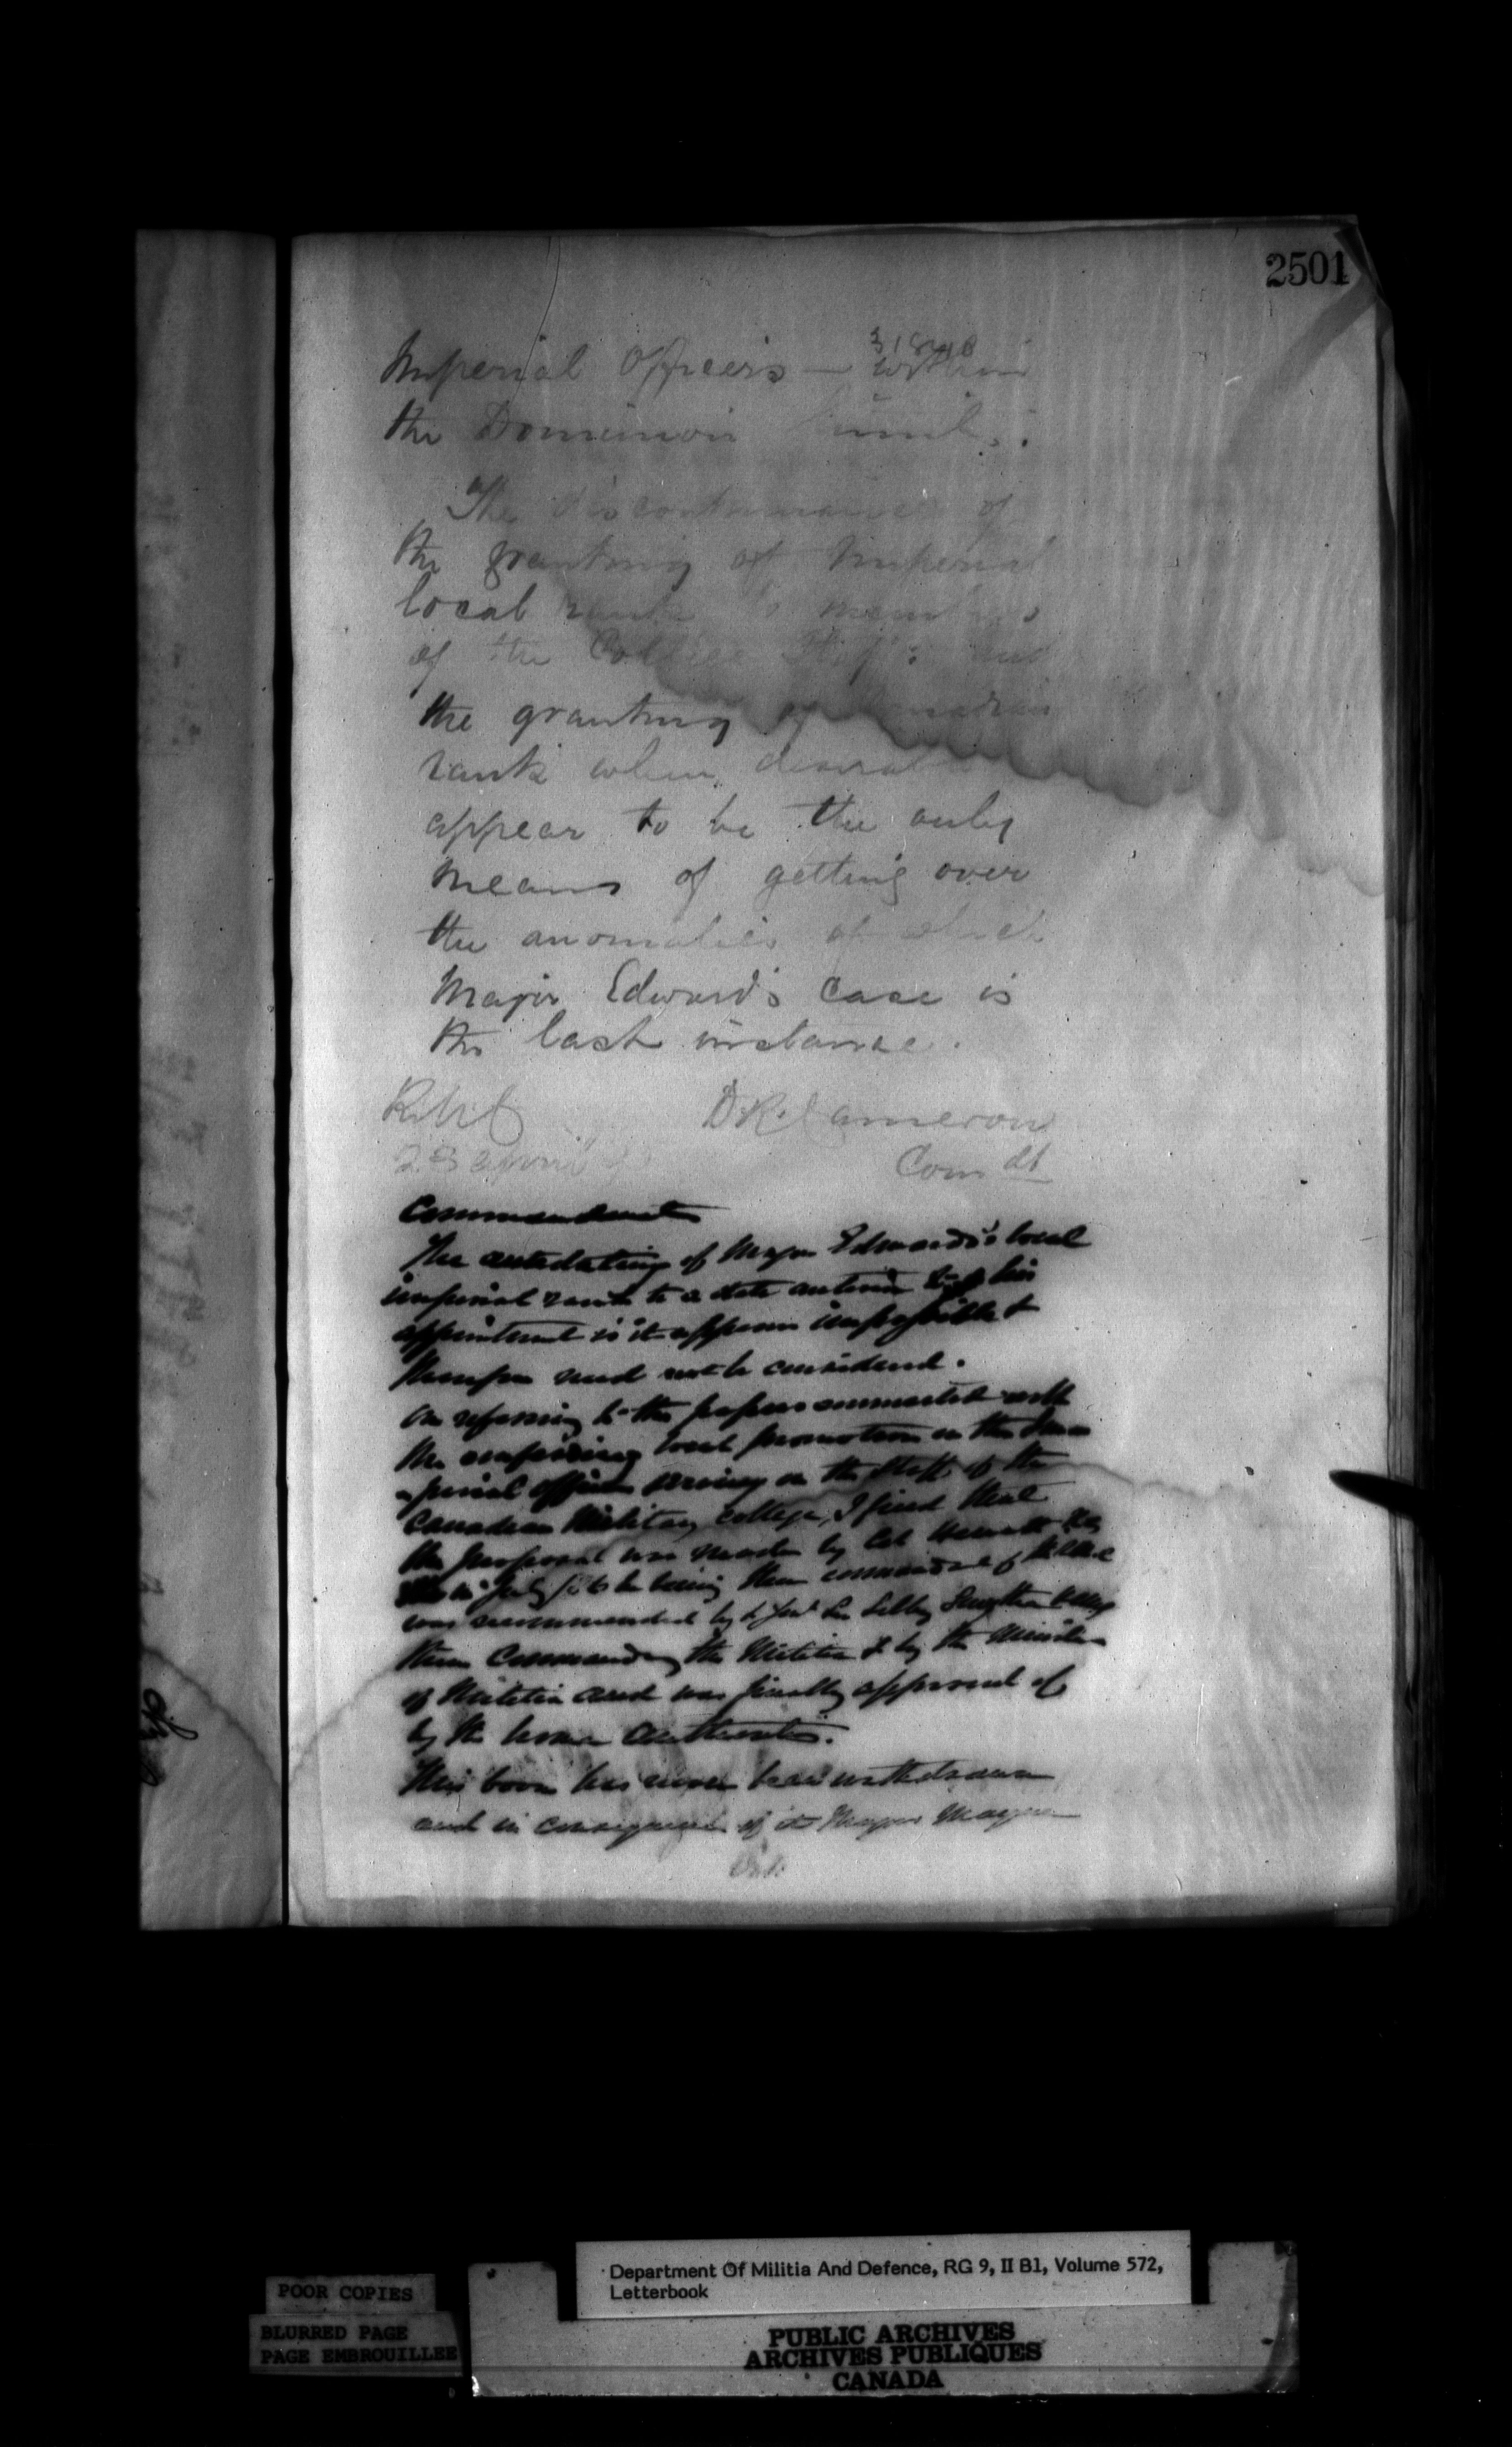 2501
31840
Imperial Officers — within
the Dominion limits.
The discontinuance of
the granting of Imperial
local rank to members
of the College Staff: and
the granting of Canadian
rank when desirable
appear to be the only
means of getting over
the anomalies of which
Major Edward's case is
the last instance.
RMC D.R. Cameron
23 April Comdt
Commandant
The antedating of Major Edwards's local
imperial rank to a date anterior to his
appointment is it appears impossible &
therefore need not be considered.
On referring to the papers connected with
the conferring local promotion on the Im
perial officers serving on the Staff of the
Canadian Military College, I find that
the proposal was made by Col Hewett RE
in July he being then commandant of the RMC
was recommended by Lt Genl Sir Selby Smyth
then Commanding the Militia & by the Minister
of Militia and was finally approved of
by the home authorities.
This boon has never been withdrawn
and in consequence of it Major Mayne
Department Of Militia And Defence, RG 9, II B1, Volume 572,
Letterbook
POOR COPIES
BLURRED PAGE
PAGE EMBROUILLEE
PUBLIC ARCHIVES
ARCHIVES PUBLIQUES
CANADA